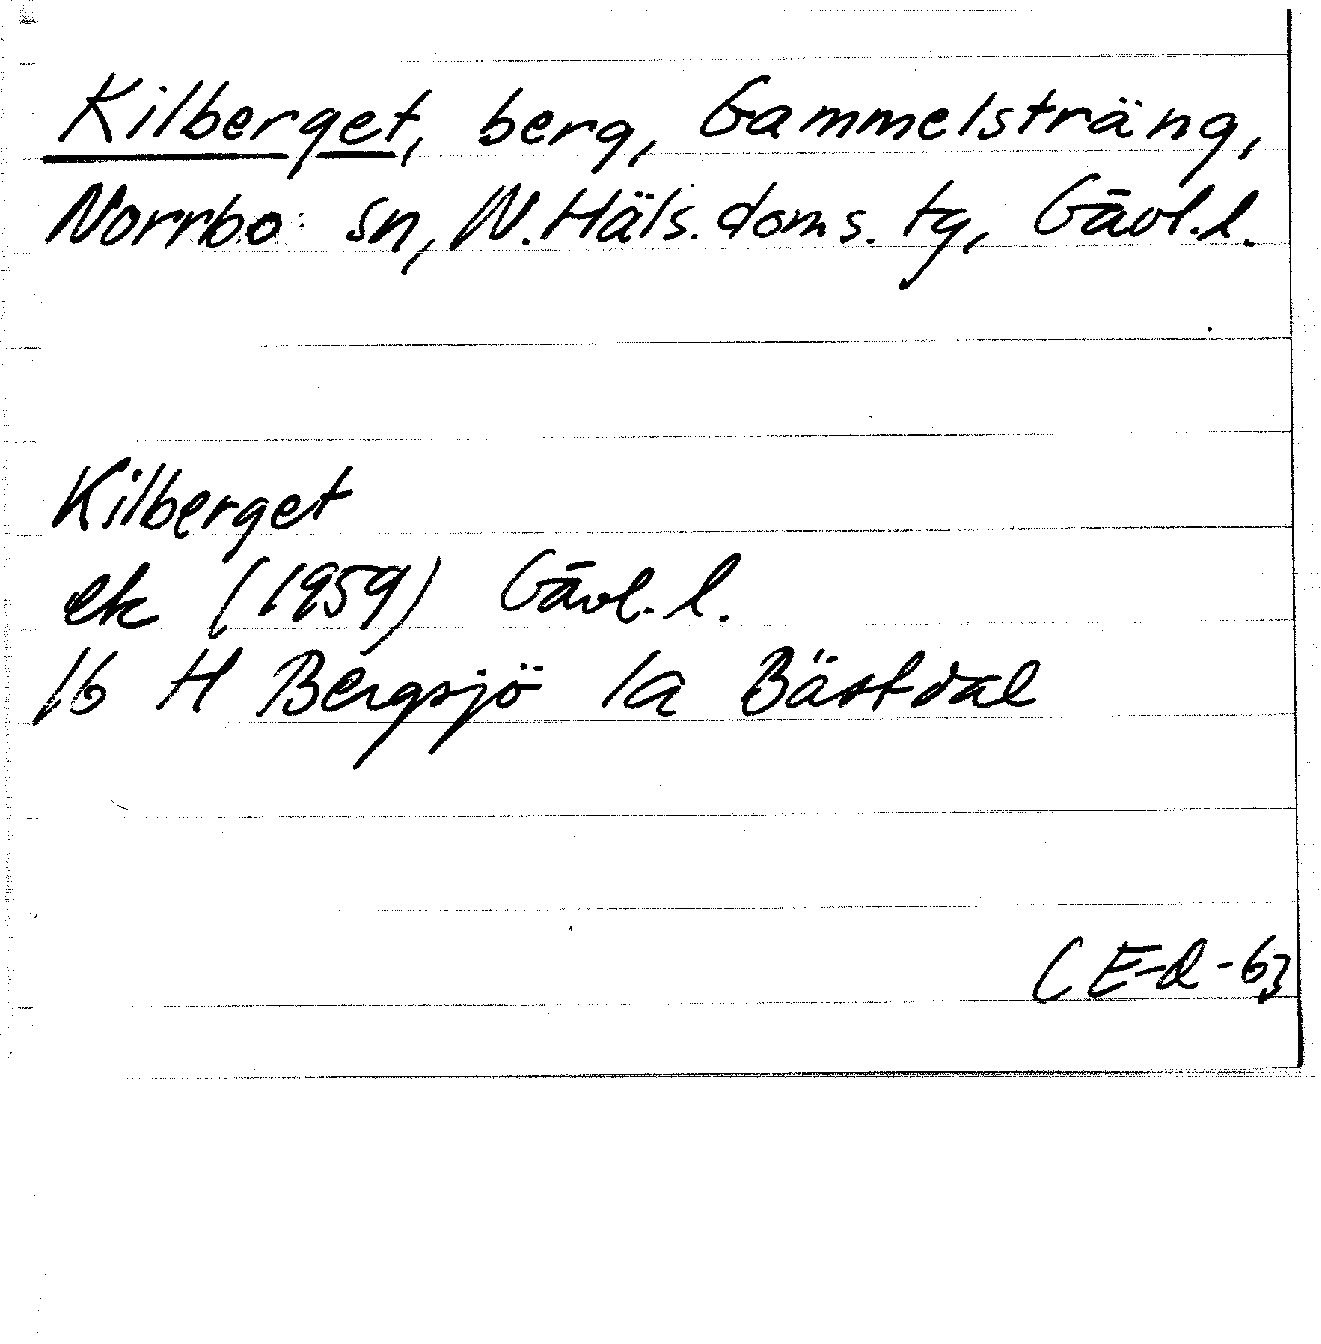 Kilberget, berg, Gammelsträng,
Norrbo sn, N. Häls. doms. tg, Gävl. l.
Kilberget
ek (1959) Gävl. l.
16 H Bergsjö 1a Bästdal
CE-d-63